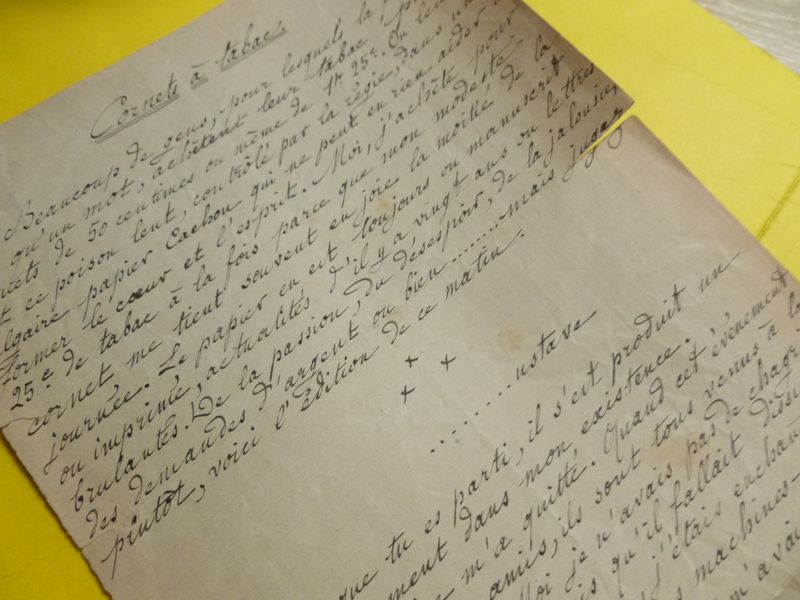 Cornets à tabac.
Beaucoup de gens, pour lesquels la
qu'un mot, achètent leur tabac
de 50 centimes ou même de 1f. 25c. On
ce poison lent, contrôlé par la régie, dans un
papier Cachou qui ne peut en rien aider à
former le cœur et l'esprit. Moi, j'achète pour
25c. de tabac à la fois parce que mon modeste
cornet me tient souvent en joie la moitié de la
journée. Le papier en est toujours ou manuscrit
ou imprimé, actualités d'il y a vingt ans ou lettres
brulantes. De la passion, du désespoir, de la jalousie,
des demandes d'argent ou bien ........ mais jugez
plutôt, voici l'édition de ce matin.
+ + +
........ustave
que tu es parti, il s'est produit un
dans mon existence.
m'a quitté. Quand cet événement
amis, ils sont tous venus à la
je n'avais pas de
qu'il fallait
j'étais
machines-
m'avai